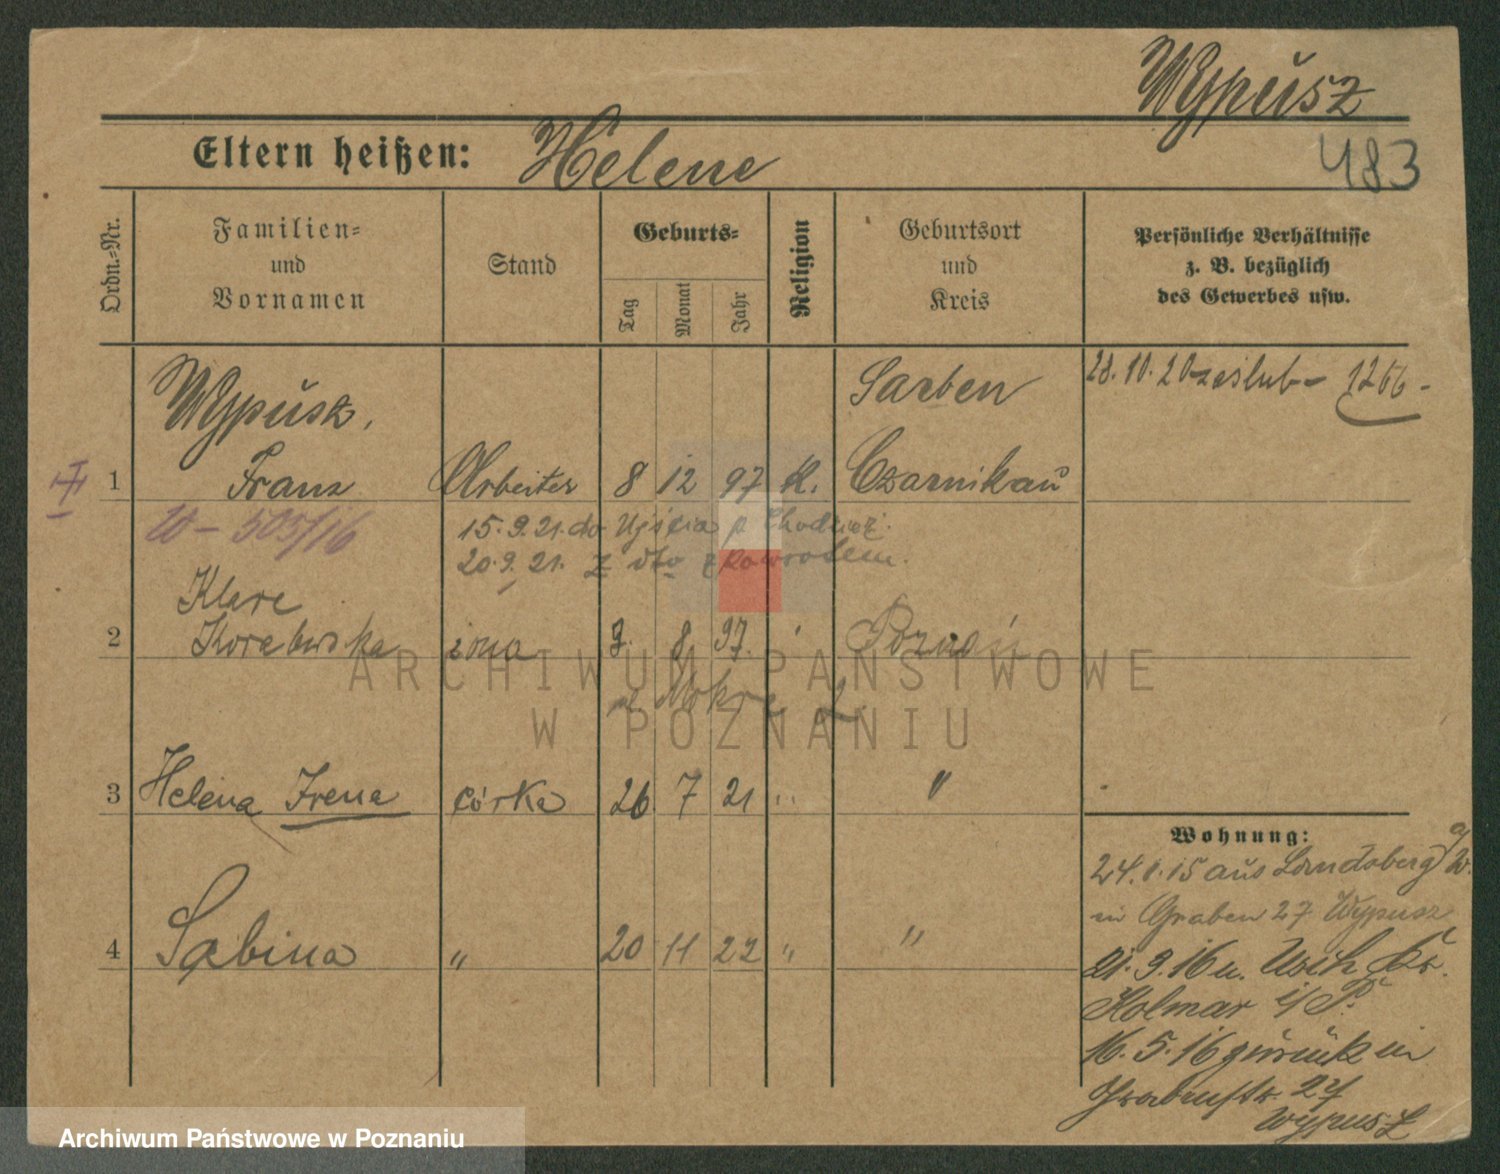 Wypusz
483
Eltern heißen: Helene
Ordn.-Nr.
Familien-
und
Vornamen
Stand
Geburts-
Tag
Monat
Jahr
Religion
Geburtsort
und
Kreis
Persönliche Verhältnisse
z. B. bezüglich
des Gewerbes usw.
Wypusz,
Sarben
28.10.20 ześlub- 1266-
1 Franz Arbeiter 8 12 97 K. Czarnikau
W-505/16
15.9.21. do Ujścia p Chodzież.
20.9.21. z dto z powrotem.
Klara
2 żona 9. 8 97. Poznań
3 Helena Irena córka 26 7 21 " "
4 Sabina " 20 11 22 " "
Wohnung:
24.1.15 aus Landsberg a/W.
in Graben 27 Wypusz
21.3.16 n. Usch Kr.
Kolmar i/P.
16.5.16 zurück in
Grabenstr. 27
Wypusz
ARCHIWUM PAŃSTWOWE
W POZNANIU
Archiwum Państwowe w Poznaniu